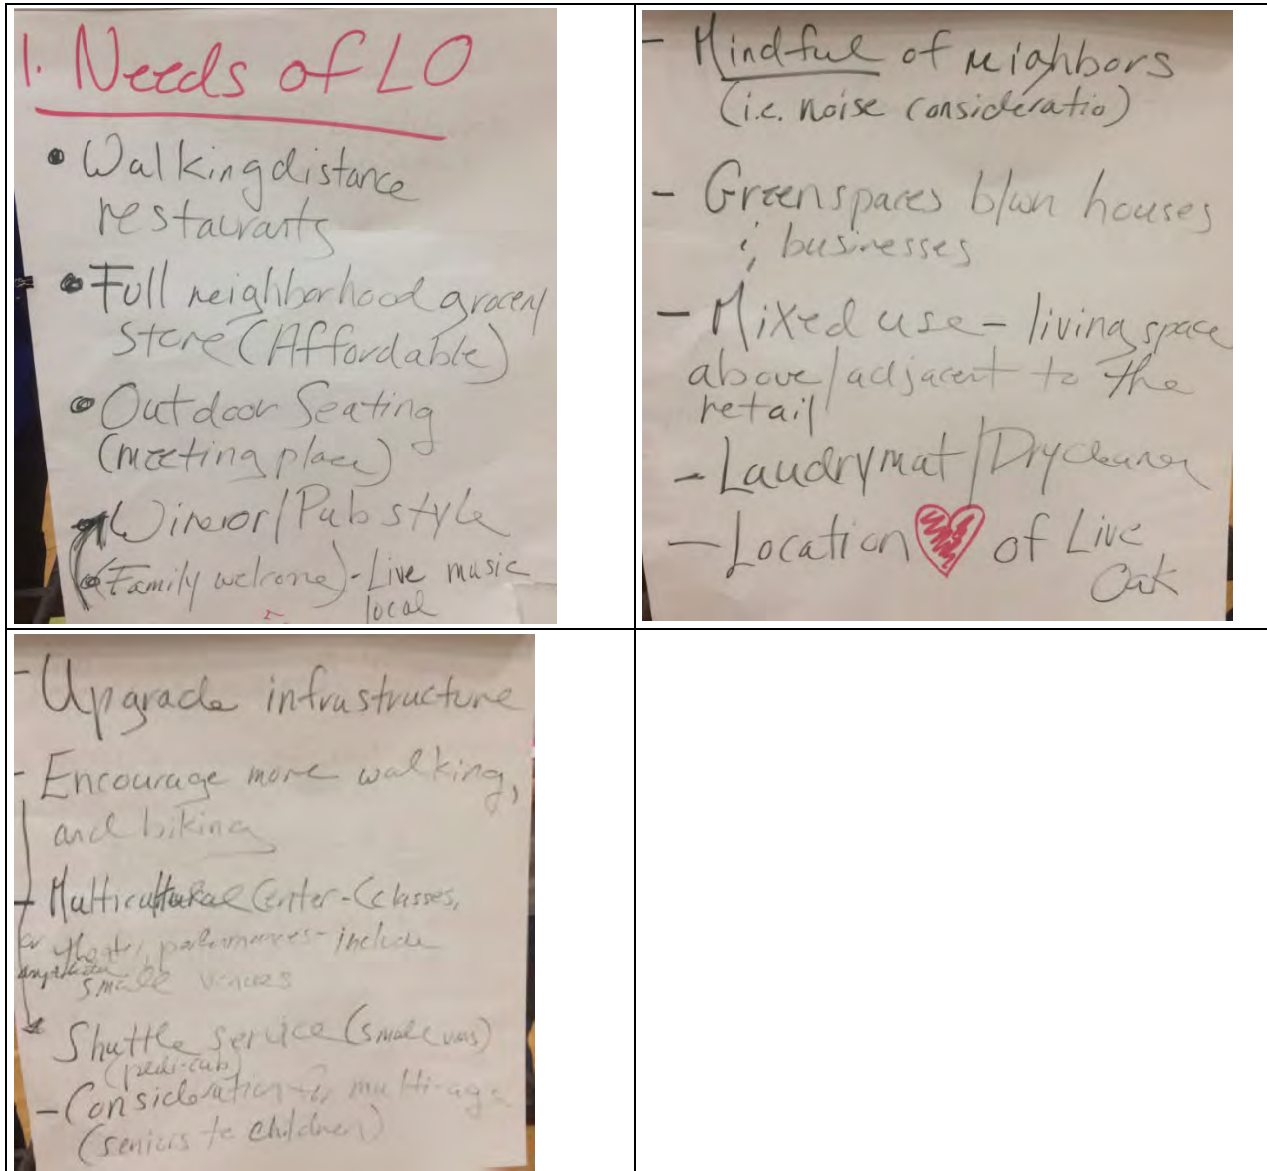 1. Needs of LO
• Walking distance
restaurants
• Full neighborhood grocery
store (Affordable)
• Outdoor Seating
(meeting place)
/Pub style
• (Family welcome) - Live music
local
- Mindful of neighbors
(i.e. noise consideratio)
- Greenspaces b/wn houses
& businesses
- Mixed use - living space
above/adjacent to the
retail
- Laudrymat/Drycleaner
- Location ♥ of Live
Oak
- Upgrade infrastructure
- Encourage more walking,
and biking
- Multicultural Center - (classes,
performances - include
small venues
Shuttle service (small vans)
(pedi-cab)
- Consideration for multi-age
(seniors to children)